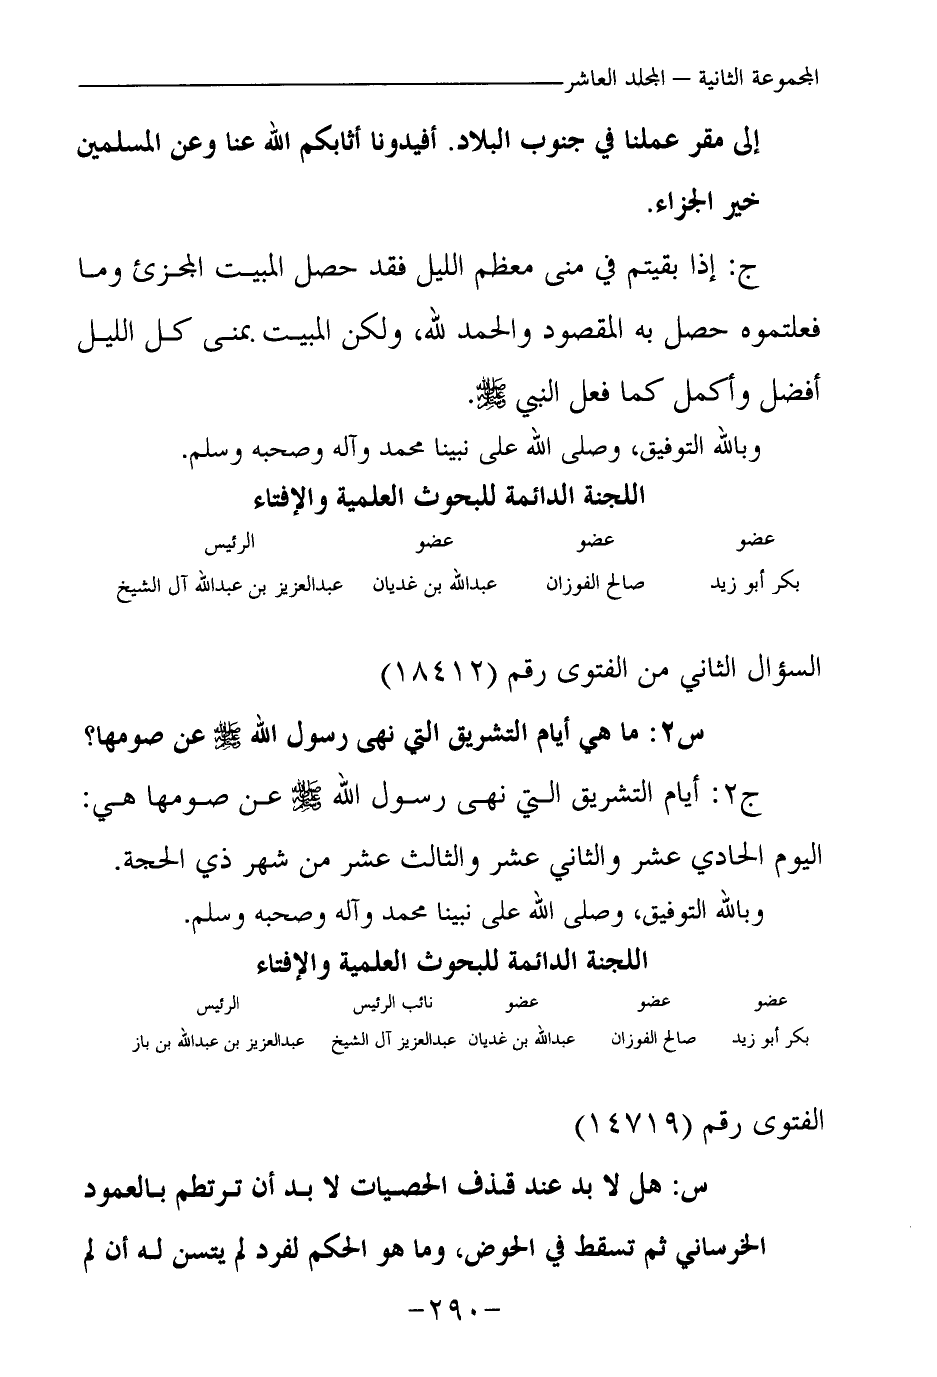 المجموعة الثانية – المجلد العاشر
إلى مقر عملنا في جنوب البلاد. أفيدونا أثابكم الله عنا وعن المسلمين
خير الجزاء.
ج: إذا بقيتم في منى معظم الليل فقد حصل المبيت المجزئ وما
فعلتموه حصل به المقصود والحمد لله، ولكن المبيت بمنى كل الليل
أفضل وأكمل كما فعل النبي ﷺ.
وبالله التوفيق، وصلى الله على نبينا محمد وآله وصحبه وسلم.
اللجنة الدائمة للبحوث العلمية والإفتاء
عضو عضو عضو الرئيس
بكر أبو زيد صالح الفوزان عبدالله بن غديان عبدالعزيز بن عبدالله آل الشيخ
السؤال الثاني من الفتوى رقم (١٨٤١٢)
س٢: ما هي أيام التشريق التي نهى رسول الله ﷺ عن صومها؟
ج٢: أيام التشريق التي نهى رسول الله ﷺ عن صومها هي:
اليوم الحادي عشر والثاني عشر والثالث عشر من شهر ذي الحجة.
وبالله التوفيق، وصلى الله على نبينا محمد وآله وصحبه وسلم.
اللجنة الدائمة للبحوث العلمية والإفتاء
عضو عضو عضو نائب الرئيس الرئيس
بكر أبو زيد صالح الفوزان عبدالله بن غديان عبدالعزيز آل الشيخ عبدالعزيز بن عبدالله بن باز
الفتوى رقم (١٤٧١٩)
س: هل لا بد عند قذف الحصيات لا بد أن ترتطم بالعمود
الخرساني ثم تسقط في الحوض، وما هو الحكم لفرد لم يتسن له أن لم
-٢٩٠-